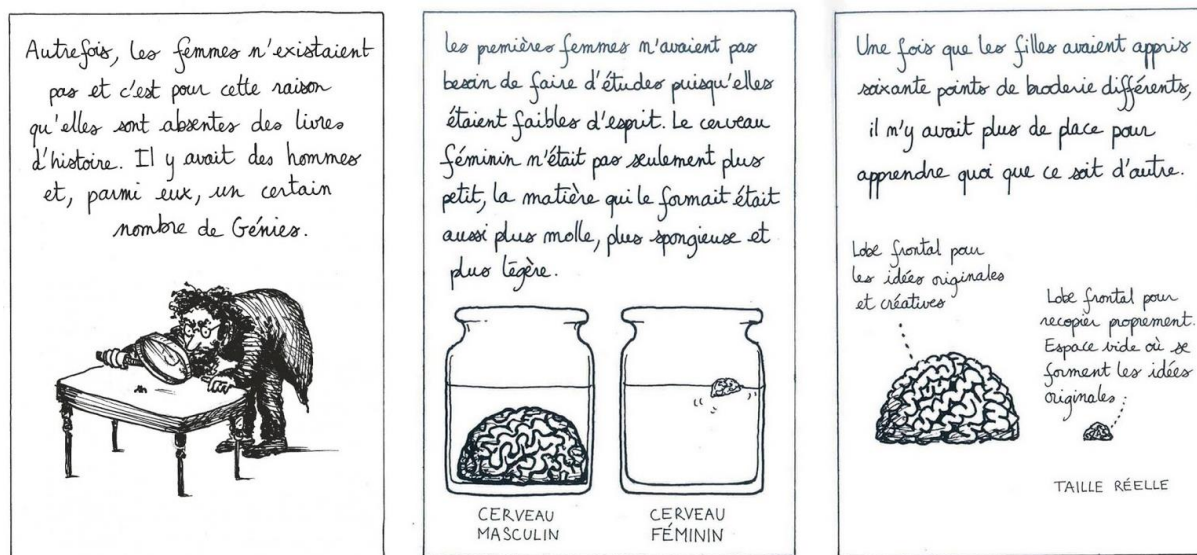 Autrefois, les femmes n'existaient
pas et c'est pour cette raison
qu'elles sont absentes des livres
d'histoire. Il y avait des hommes
et, parmi eux, un certain
nombre de Génies.
les premières femmes n'avaient pas
besoin de faire d'études puisqu'elles
étaient faibles d'esprit. Le cerveau
féminin n'était pas seulement plus
petit, la matière qui le formait était
aussi plus molle, plus spongieuse et
plus légère.
CERVEAU
MASCULIN
CERVEAU
FÉMININ
Une fois que les filles avaient appris
soixante points de broderie différents,
il n'y avait plus de place pour
apprendre quoi que ce soit d'autre.
Lobe frontal pour
les idées originales
et créatives
Lobe frontal pour
recopier proprement.
Espace vide où se
forment les idées
originales
TAILLE RÉELLE